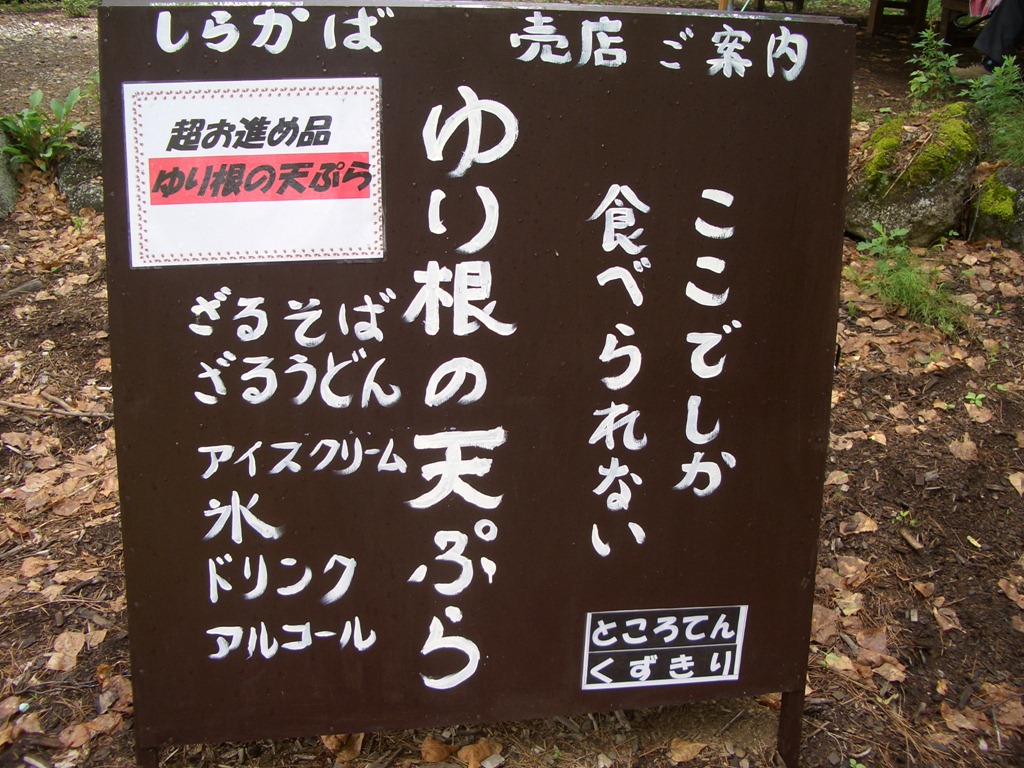 しらかば 売店 ご案内
ここでしか
食べられない
ゆり根の天ぷら
超お進め品
ゆり根の天ぷら
ざるそば
ざるうどん
アイスクリーム
氷
ドリンク
アルコール
ところてん
くずきり